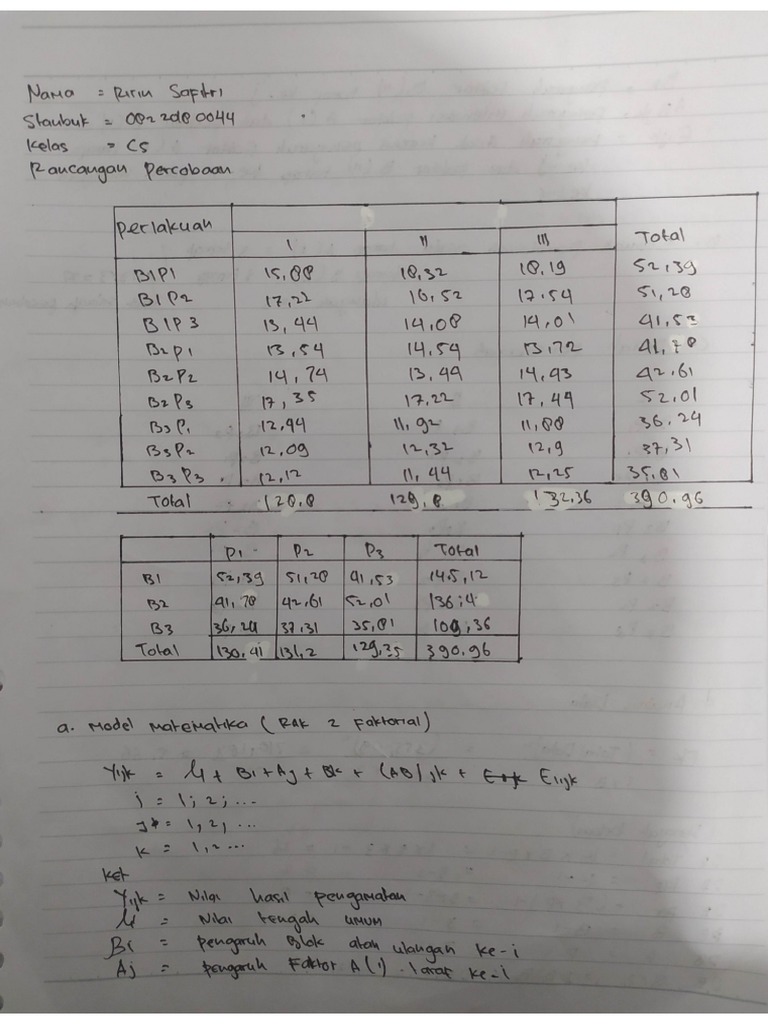 Nama = Ririn Safitri
Stambuk = 0822080044
Kelas = C5
Rancangan Percobaan
Perlakuan I II III Total
B1P1 15,88 18,32 18,19 52,39
B1P2 17,22 16,52 17.54 51,28
B1P3 13,44 14,08 14,01 41,53
B2P1 13,54 14,54 13,72 41,78
B2P2 14,74 13,44 14,43 42,61
B2P3 17,35 17,22 17,44 52,01
B3P1 12,44 11,92 11,88 36,24
B3P2 12,09 12,32 12,9 37,31
B3P3 12,12 11,44 12,25 35,81
Total 128,8 129,8 132,36 390,96
P1 P2 P3 Total
B1 52,39 51,28 41,53 145,12
B2 41,78 42,61 52,01 136,4
B3 36,24 37,31 35,81 109,36
Total 130,41 131,2 129,35 390,96
a. Model Matematika (RAK 2 Faktorial)
Yijk = µ + Bi + Aj + Bk + (AB)jk + Eijk
i = 1; 2; ...
j = 1, 2, ...
k = 1, 2 ...
Ket
Yijk = Nilai hasil pengamatan
µ = Nilai tengah umum
Bi = pengaruh Blok atau ulangan ke-i
Aj = pengaruh Faktor A(1) taraf ke-i